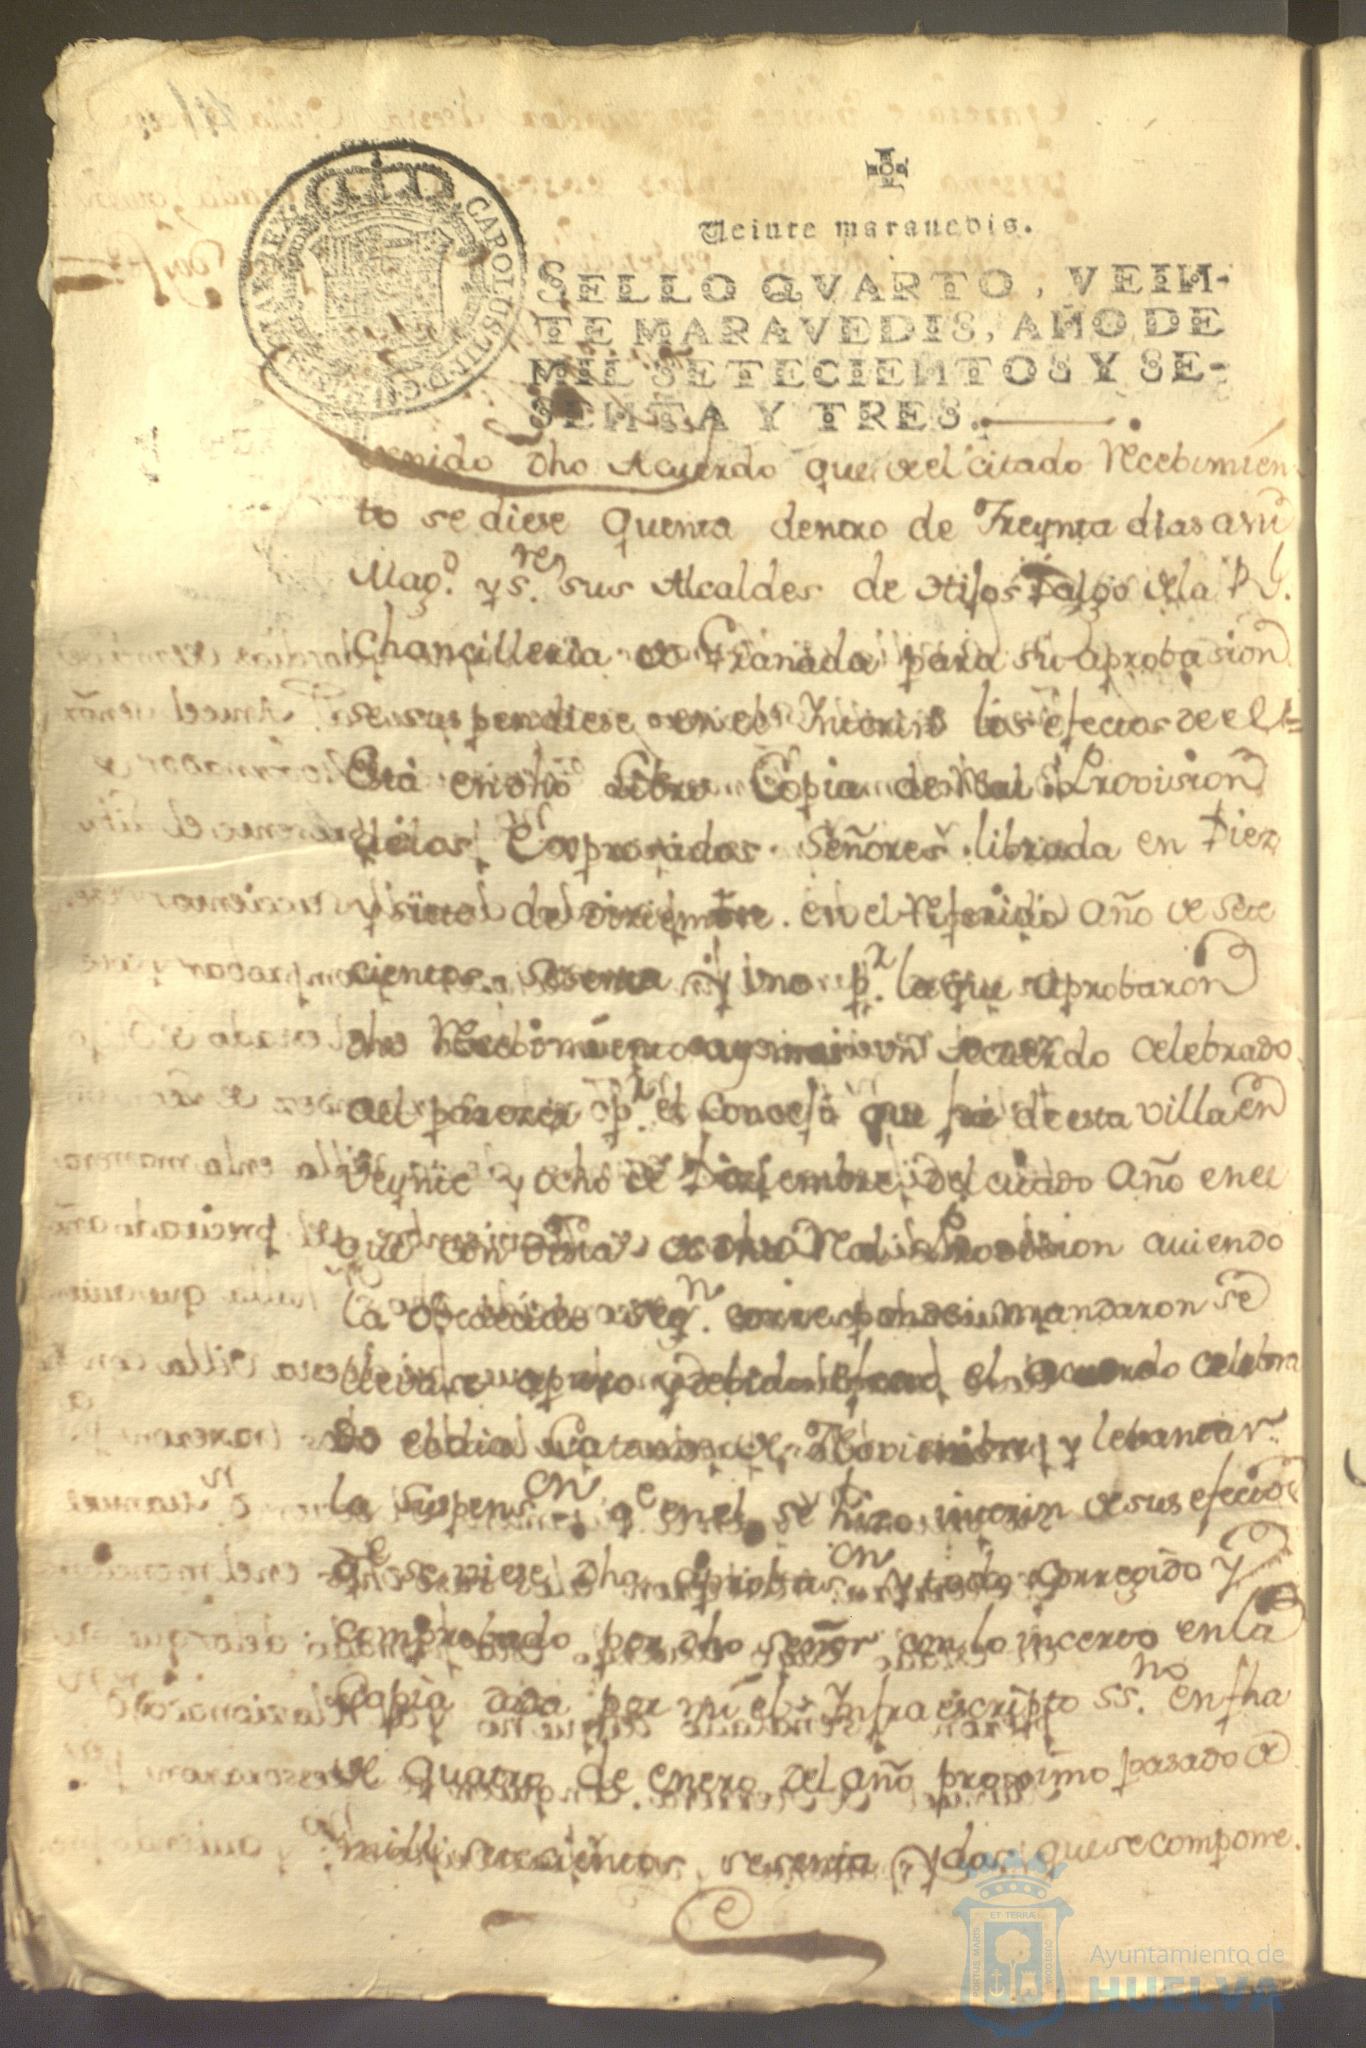 Veinte maravedis.
SELLO QVARTO, VEIN-
TE MARAVEDIS, AÑO DE
MIL SETECIENTOS Y SE-
SENTA Y TRES.
CAROLUS III D.G. HISPANIAR REX
venido dho Acuerdo que de el citado Recebimien
to se diese quenta dentro de Treynta dias a su
Mag.d y s.res sus Alcaldes de Hijos Dalgo de la Rl.
Chancilleria de Granada para su aprobasion
se suspendiese en el Interin los efectos de el =
Está en dho Libro Copia de Real Provision
de los Expresados Señores librada en Diez
y siete de Diziembre en el Referido año de sete
cientos sesenta y uno p.r la que aprobaron
dho Recibimiento y un Acuerdo celebrado
al parezer p.r el Concejo que fue de esta villa en
veynte y ocho de Diziembre del citado año en el
que con vista de dha Real Provision auiendo
la obedecido seg.n mandaron se
llevase a puro y debido efecto el acuerdo celebra
do el dia Catorze de Noviembre y lebantar
la suspens.on q.e en el se hizo interin de sus efectos
q.e se viese dha aprobas.on y todo corregido y
comprobado por dho señor con lo incerto en la
Copia dada por mi el Infraescripto ss.no en fha
de quatro de enero del año proximo pasado de
mill setecientos sesenta y dos, que se compone.
ET TERRÆ
PORTUS MARIS
CUSTODIA
Ayuntamiento de
HUELVA